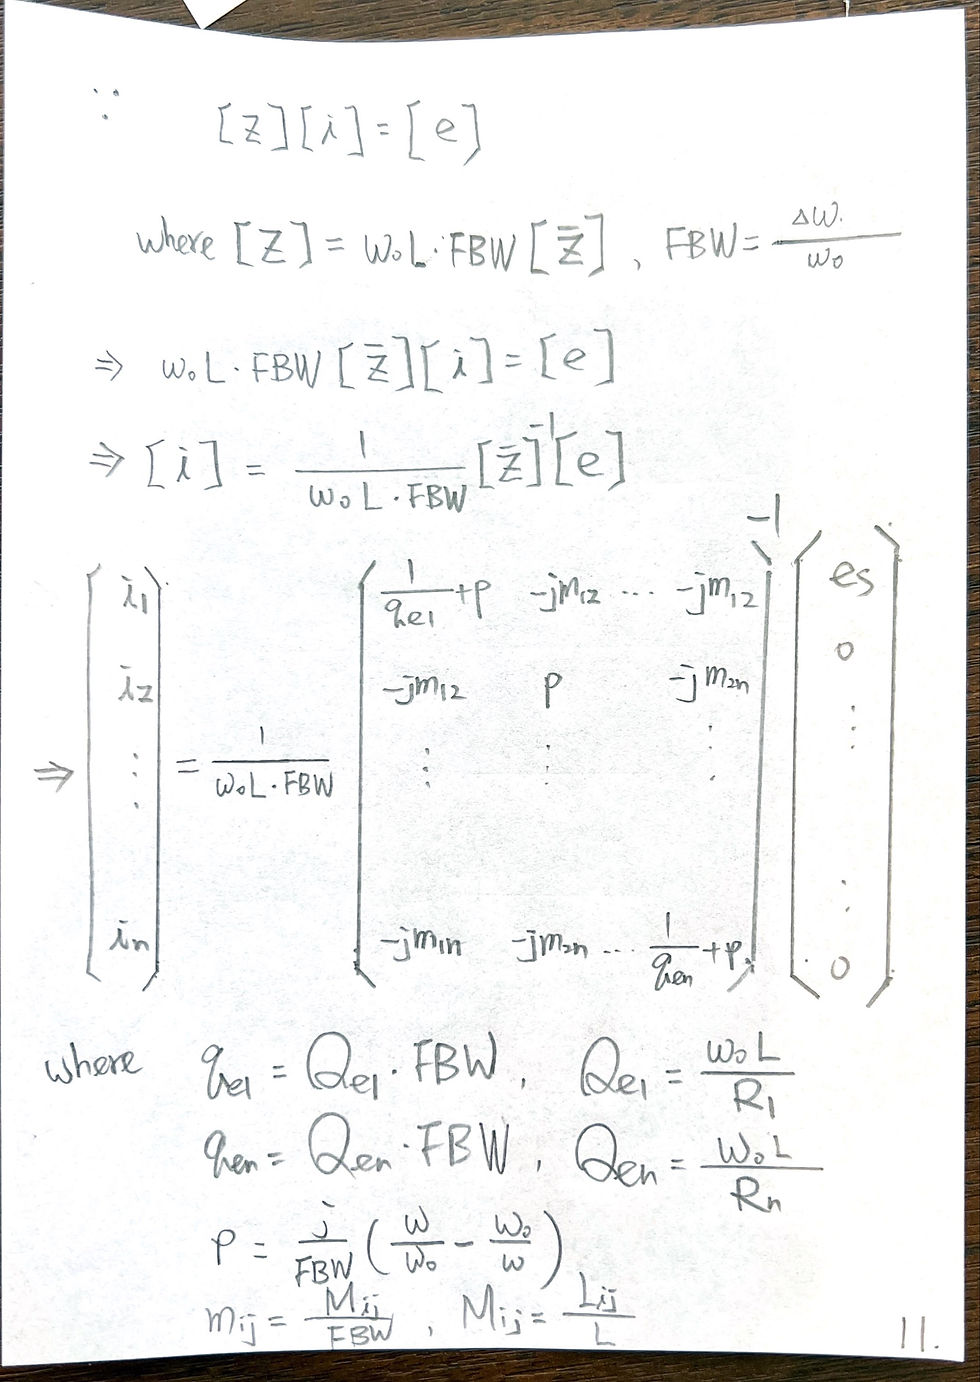 ∵ [Z][i] = [e]
where [Z] = ω₀L·FBW[Z̄], FBW = Δω/ω₀
⇒ ω₀L·FBW[Z̄][i] = [e]
⇒ [i] = 1/(ω₀L·FBW) [Z̄]⁻¹[e]
⇒ (i₁ i₂ ⋮ iₙ) = 1/(ω₀L·FBW) (
1/qe1 + p  -jm₁₂ ⋯ -jm₁₂
-jm₁₂  p  -jm₂ₙ
⋮  ⋮  ⋮
-jm₁ₙ  -jm₂ₙ ⋯ 1/qen + p
)⁻¹ (es 0 ⋮ ⋮ 0)
where qe1 = Qe1·FBW, Qe1 = ω₀L/R₁
qen = Qen·FBW, Qen = ω₀L/Rn
p = j/FBW (ω/ω₀ - ω₀/ω)
mij = Mij/FBW, Mij = Lij/L
11.